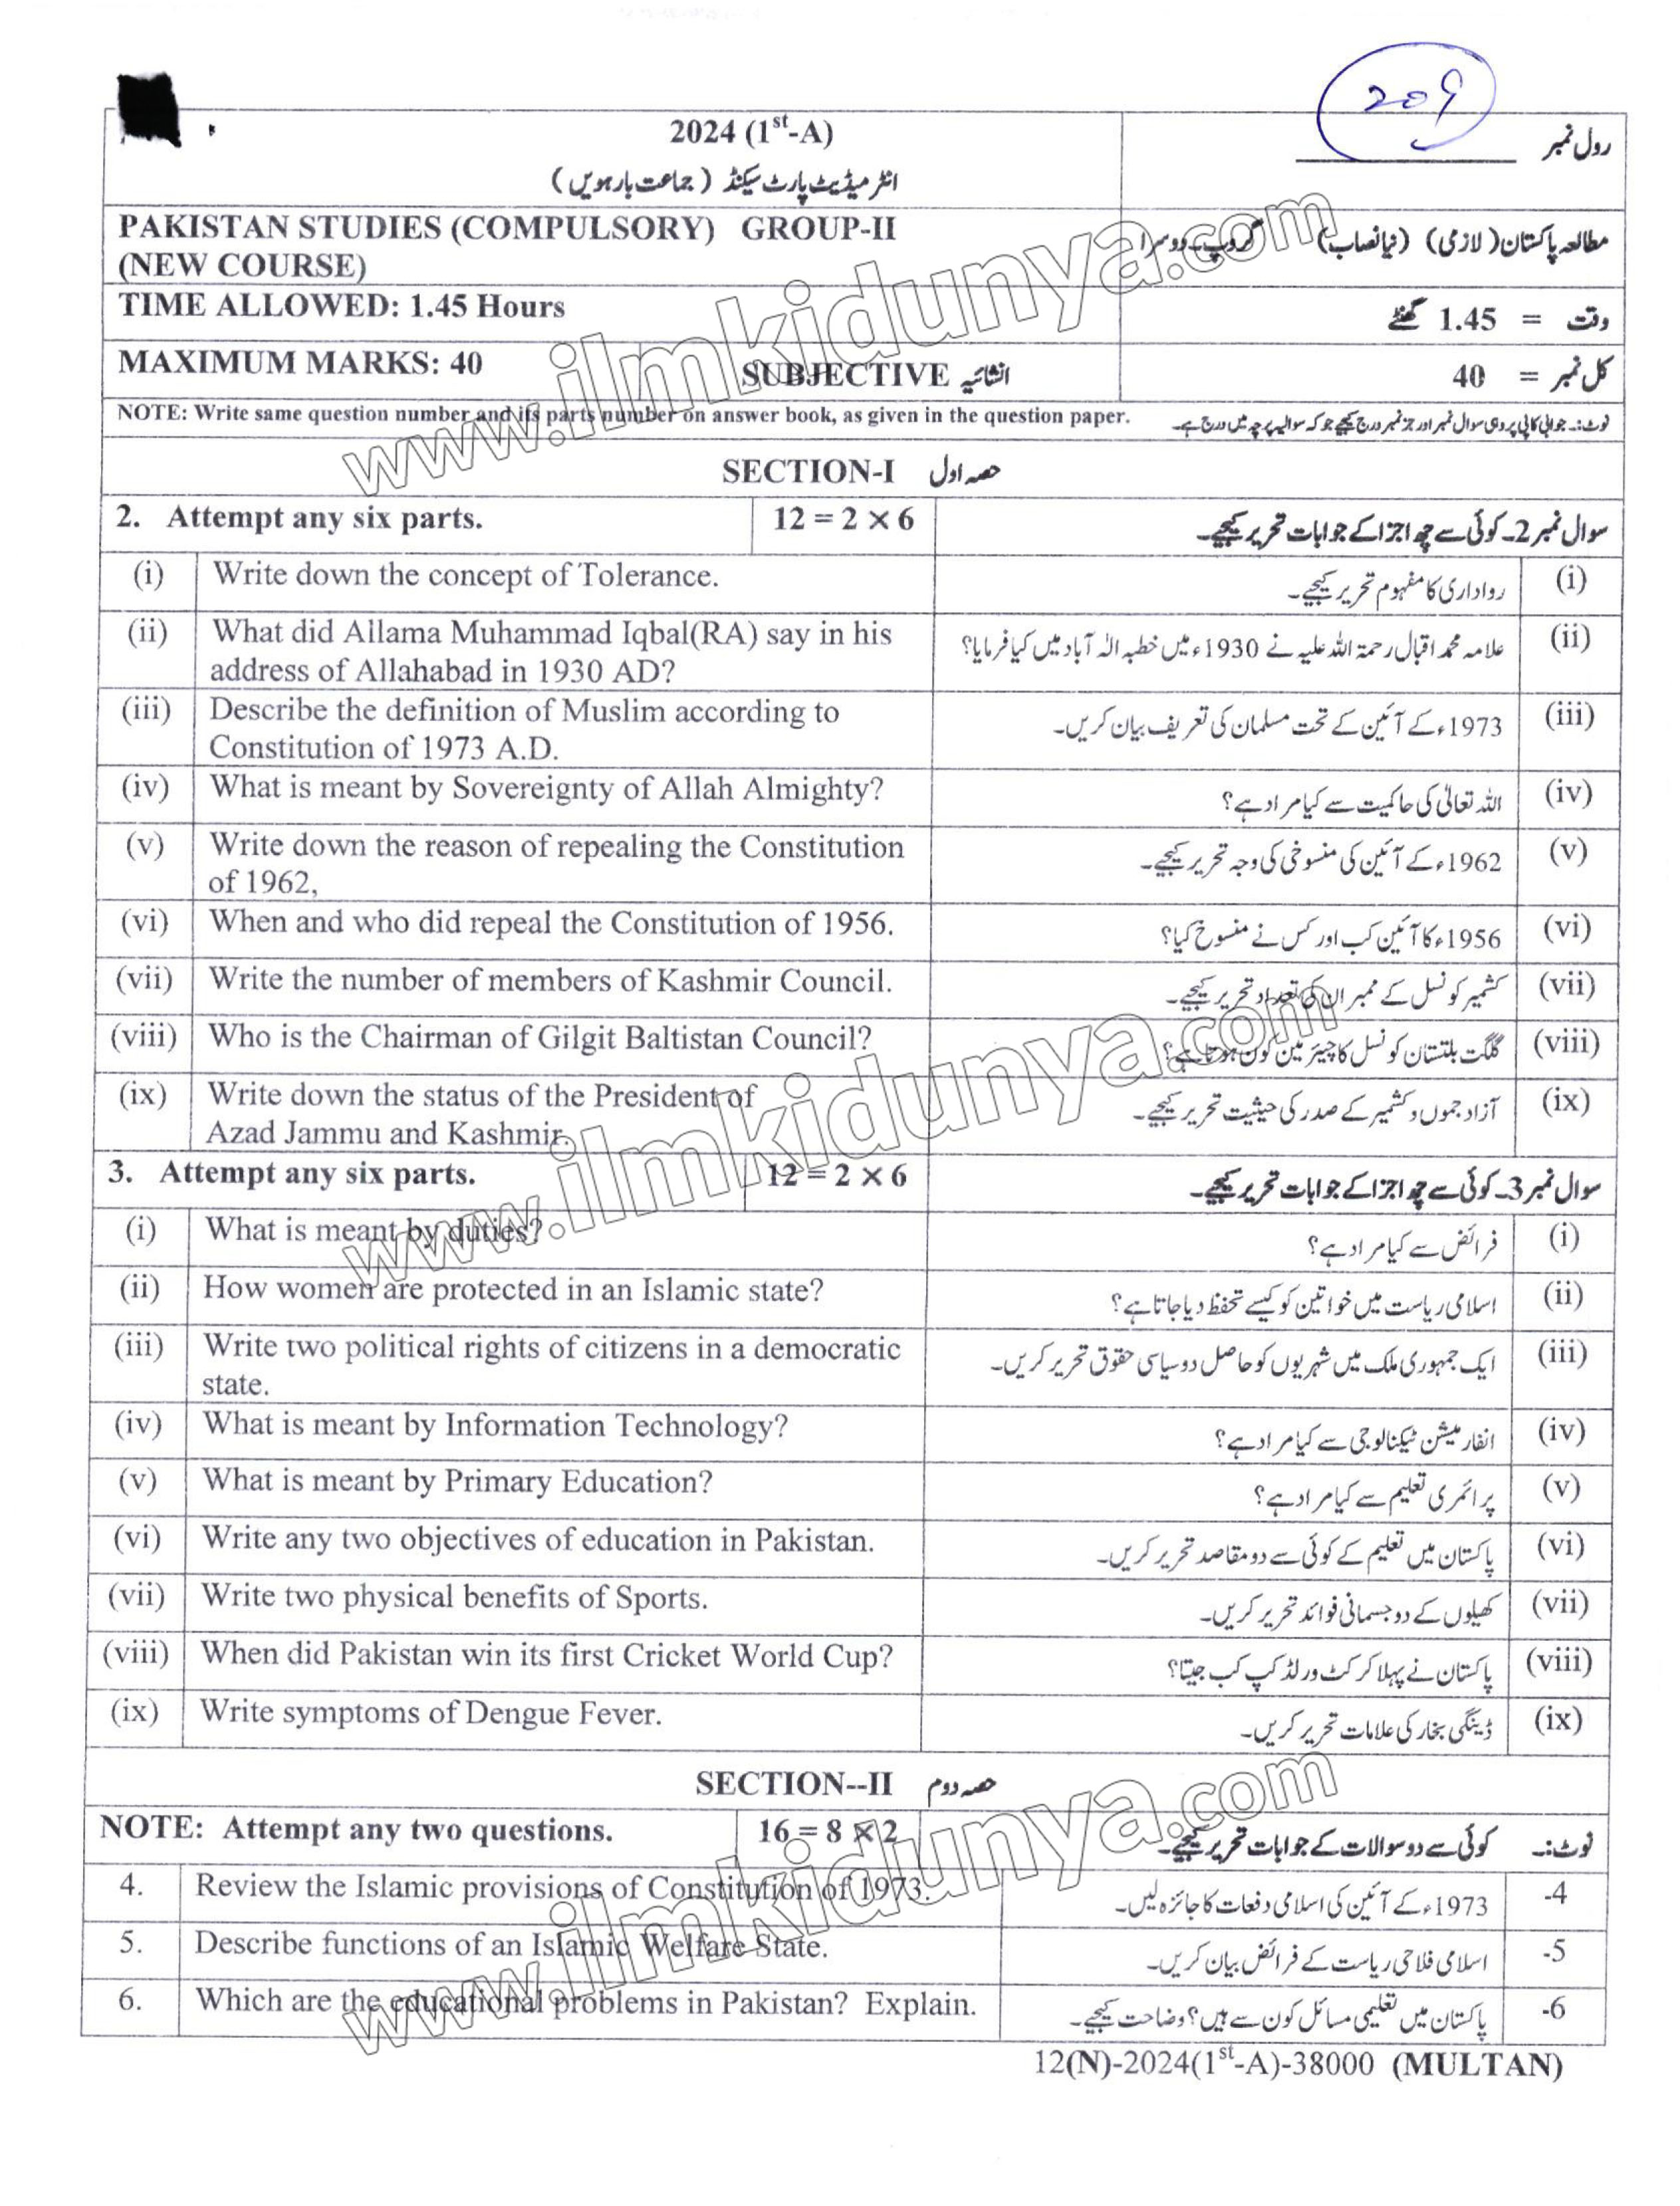 209
2024 (1st-A)
رول نمبر
انٹرمیڈیٹ پارٹ سیکنڈ ( جماعت بارہویں )
PAKISTAN STUDIES (COMPULSORY) GROUP-II
(NEW COURSE)
مطالعہ پاکستان( لازمی) (نیا نصاب) گروپ۔دوسرا
TIME ALLOWED: 1.45 Hours
وقت = 1.45 گھنٹے
MAXIMUM MARKS: 40
SUBJECTIVE انشائیہ
کل نمبر = 40
NOTE: Write same question number and its parts number on answer book, as given in the question paper.
نوٹ:۔ جوابی کاپی پر وہی سوال نمبر اور جز نمبر درج کیجیے جو کہ سوالیہ پرچہ میں درج ہے۔
SECTION-I حصہ اول
2. Attempt any six parts. 12 = 2 × 6
سوال نمبر 2۔ کوئی سے چھ اجزا کے جوابات تحریر کیجیے۔
(i) Write down the concept of Tolerance.
رواداری کا مفہوم تحریر کیجیے۔ (i)
(ii) What did Allama Muhammad Iqbal(RA) say in his
address of Allahabad in 1930 AD?
علامہ محمد اقبال رحمۃ اللہ علیہ نے 1930ء میں خطبہ الٰہ آباد میں کیا فرمایا؟ (ii)
(iii) Describe the definition of Muslim according to
Constitution of 1973 A.D.
1973ء کے آئین کے تحت مسلمان کی تعریف بیان کریں۔ (iii)
(iv) What is meant by Sovereignty of Allah Almighty?
اللہ تعالیٰ کی حاکمیت سے کیا مراد ہے؟ (iv)
(v) Write down the reason of repealing the Constitution
of 1962,
1962ء کے آئین کی منسوخی کی وجہ تحریر کیجیے۔ (v)
(vi) When and who did repeal the Constitution of 1956.
1956ء کا آئین کب اور کس نے منسوخ کیا؟ (vi)
(vii) Write the number of members of Kashmir Council.
کشمیر کونسل کے ممبران کی تعداد تحریر کیجیے۔ (vii)
(viii) Who is the Chairman of Gilgit Baltistan Council?
گلگت بلتستان کونسل کا چیئرمین کون ہوتا ہے؟ (viii)
(ix) Write down the status of the President of
Azad Jammu and Kashmir.
آزاد جموں و کشمیر کے صدر کی حیثیت تحریر کیجیے۔ (ix)
3. Attempt any six parts. 12 = 2 × 6
سوال نمبر 3۔ کوئی سے چھ اجزا کے جوابات تحریر کیجیے۔
(i) What is meant by duties?
فرائض سے کیا مراد ہے؟ (i)
(ii) How women are protected in an Islamic state?
اسلامی ریاست میں خواتین کو کیسے تحفظ دیا جاتا ہے؟ (ii)
(iii) Write two political rights of citizens in a democratic
state.
ایک جمہوری ملک میں شہریوں کو حاصل دو سیاسی حقوق تحریر کریں۔ (iii)
(iv) What is meant by Information Technology?
انفارمیشن ٹیکنالوجی سے کیا مراد ہے؟ (iv)
(v) What is meant by Primary Education?
پرائمری تعلیم سے کیا مراد ہے؟ (v)
(vi) Write any two objectives of education in Pakistan.
پاکستان میں تعلیم کے کوئی سے دو مقاصد تحریر کریں۔ (vi)
(vii) Write two physical benefits of Sports.
کھیلوں کے دو جسمانی فوائد تحریر کریں۔ (vii)
(viii) When did Pakistan win its first Cricket World Cup?
پاکستان نے پہلا کرکٹ ورلڈ کپ کب جیتا؟ (viii)
(ix) Write symptoms of Dengue Fever.
ڈینگی بخار کی علامات تحریر کریں۔ (ix)
SECTION--II حصہ دوم
NOTE: Attempt any two questions. 16 = 8 × 2
نوٹ:۔ کوئی سے دو سوالات کے جوابات تحریر کیجیے۔
4. Review the Islamic provisions of Constitution of 1973.
1973ء کے آئین کی اسلامی دفعات کا جائزہ لیں۔ -4
5. Describe functions of an Islamic Welfare State.
اسلامی فلاحی ریاست کے فرائض بیان کریں۔ -5
6. Which are the educational problems in Pakistan? Explain.
پاکستان میں تعلیمی مسائل کون سے ہیں؟ وضاحت کیجیے۔ -6
12(N)-2024(1st-A)-38000 (MULTAN)
www.ilmkidunya.com
www.ilmkidunya.com
www.ilmkidunya.com